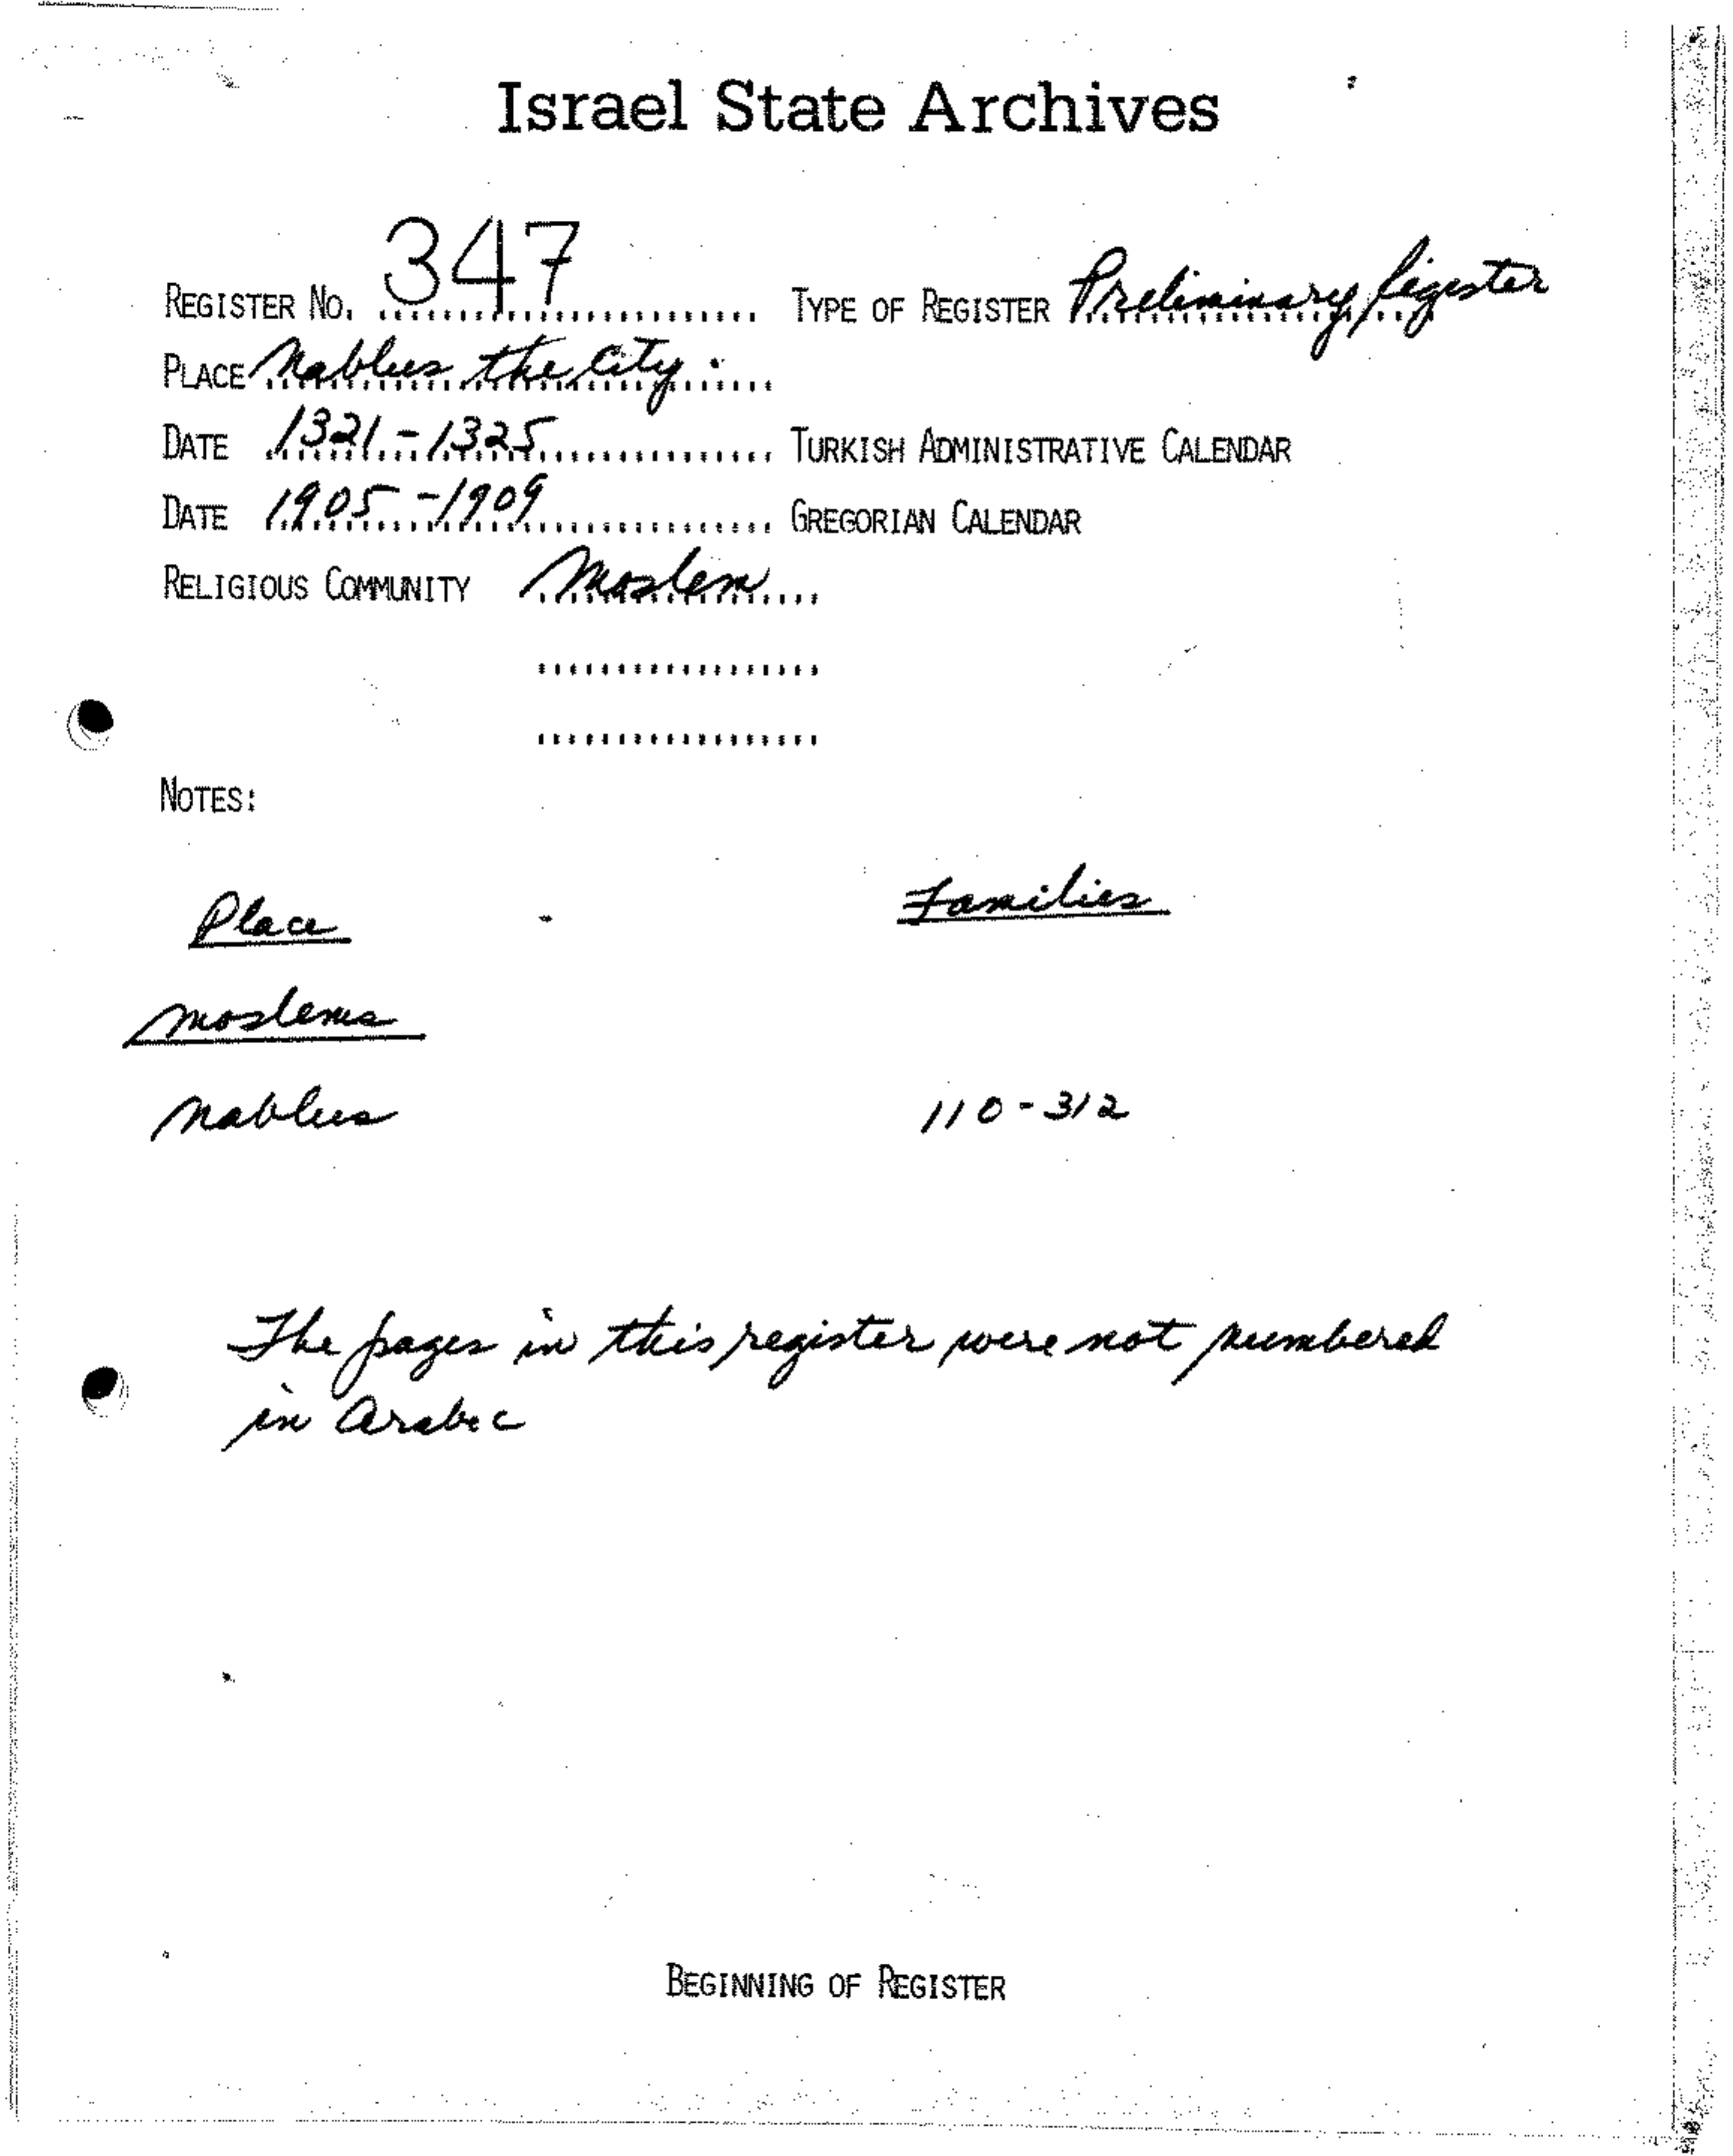 Israel State Archives
REGISTER NO. 347 TYPE OF REGISTER Preliminary Register
PLACE Nablus the City.
DATE 1321-1325 TURKISH ADMINISTRATIVE CALENDAR
DATE 1905-1909 GREGORIAN CALENDAR
RELIGIOUS COMMUNITY Moslem
NOTES:
Place Families
Moslems
Nablus 110-312
The pages in this register were not numbered
in Arabic
BEGINNING OF REGISTER